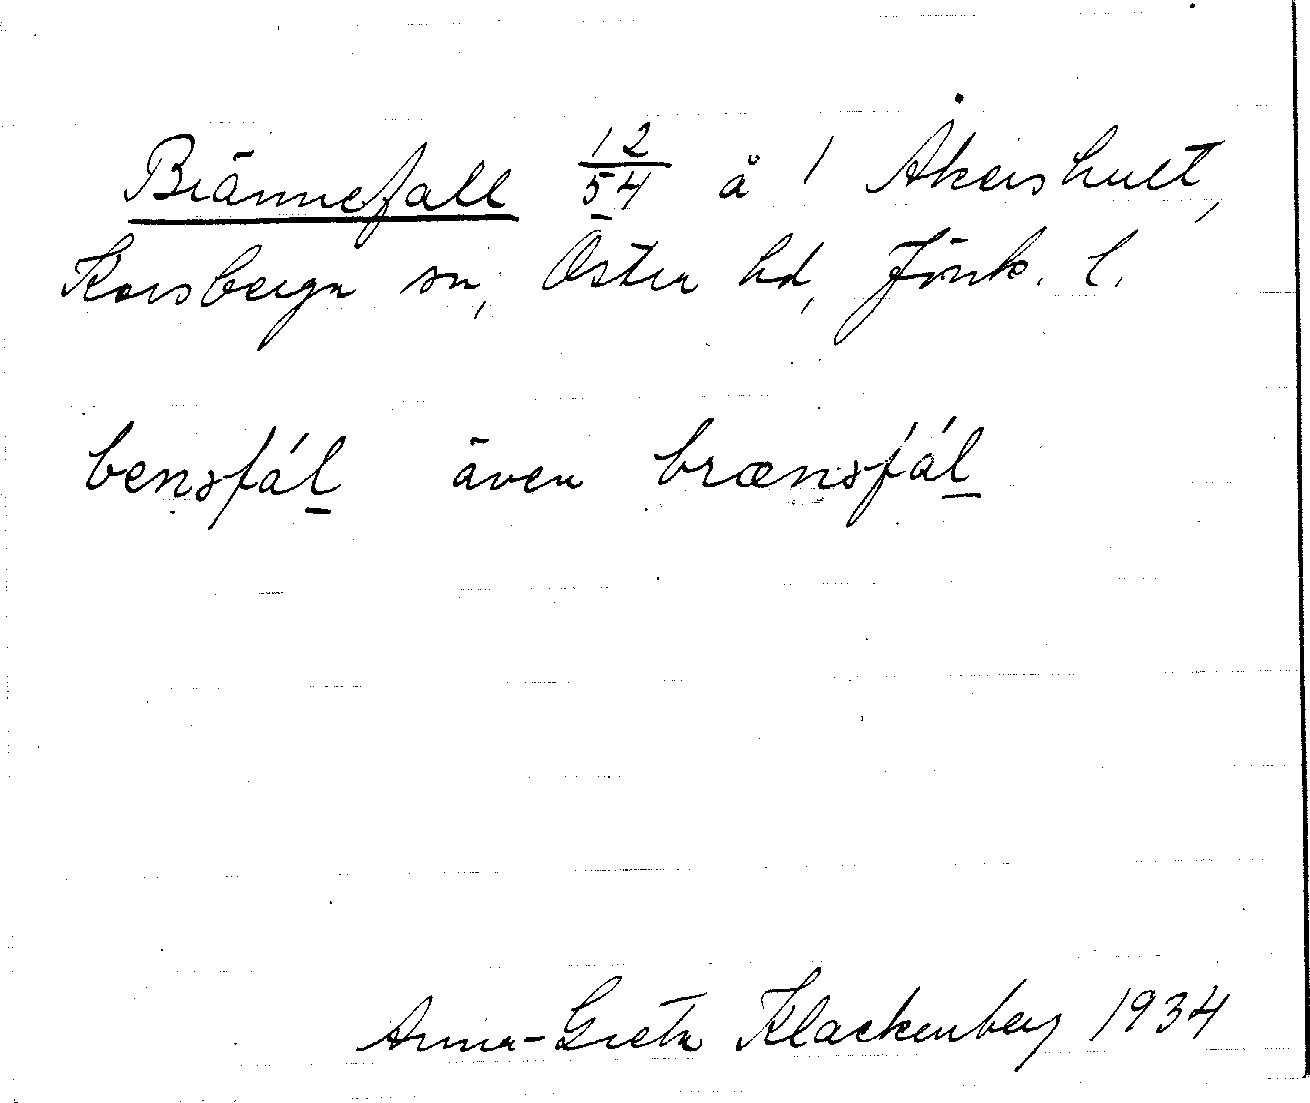 Brännefall 12/54 å 1 Åkershult,
Korsberga sn, Östra hd, Jönk. l.
benəfál̲ även brænəfál̲
Anna-Greta Klackenberg 1934